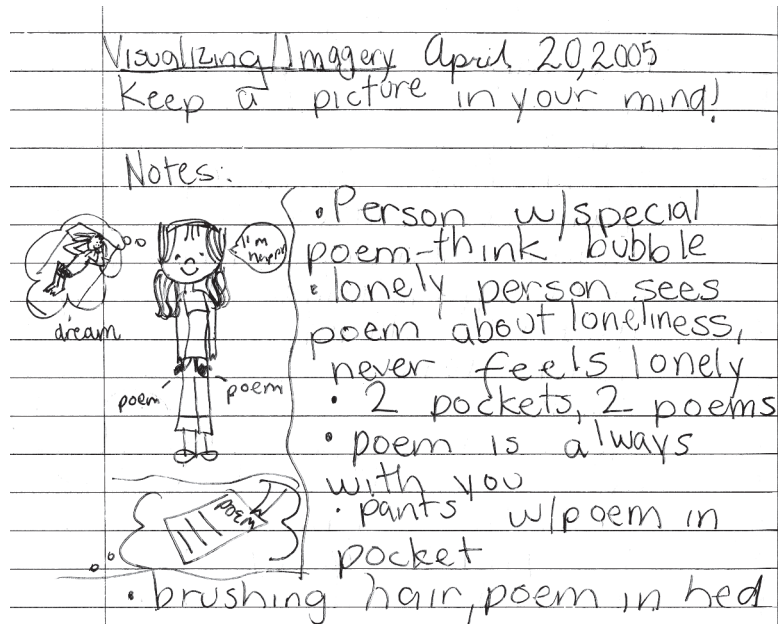 Visualizing/Imagery April 20, 2005
Keep a picture in your mind!
Notes:
• Person w/special
poem-think bubble
• lonely person sees
poem about loneliness,
never feels lonely
• 2 pockets, 2 poems
• poem is always
with you
• pants w/poem in
pocket
• brushing hair, poem in hed
I'm
dream
poem
poem
poem